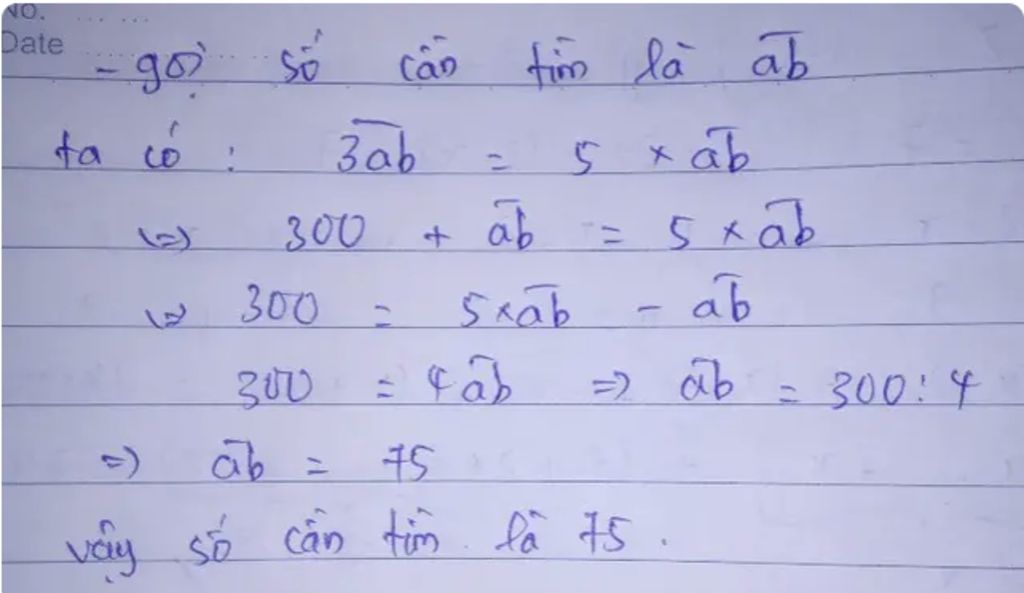 No.
Date
- gọi số cần tìm là a̅b̅
ta có : 3̅a̅b̅ = 5 × a̅b̅
(=) 300 + a̅b̅ = 5 × a̅b̅
(=) 300 = 5×a̅b̅ - a̅b̅
300 = 4a̅b̅ =) a̅b̅ = 300 : 4
=) a̅b̅ = 75
vậy số cần tìm là 75.